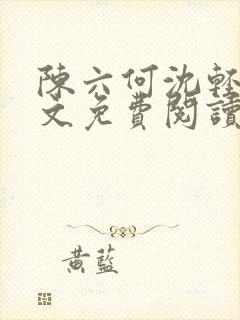 陳六何沈輕
文免費閱讀
黃藍